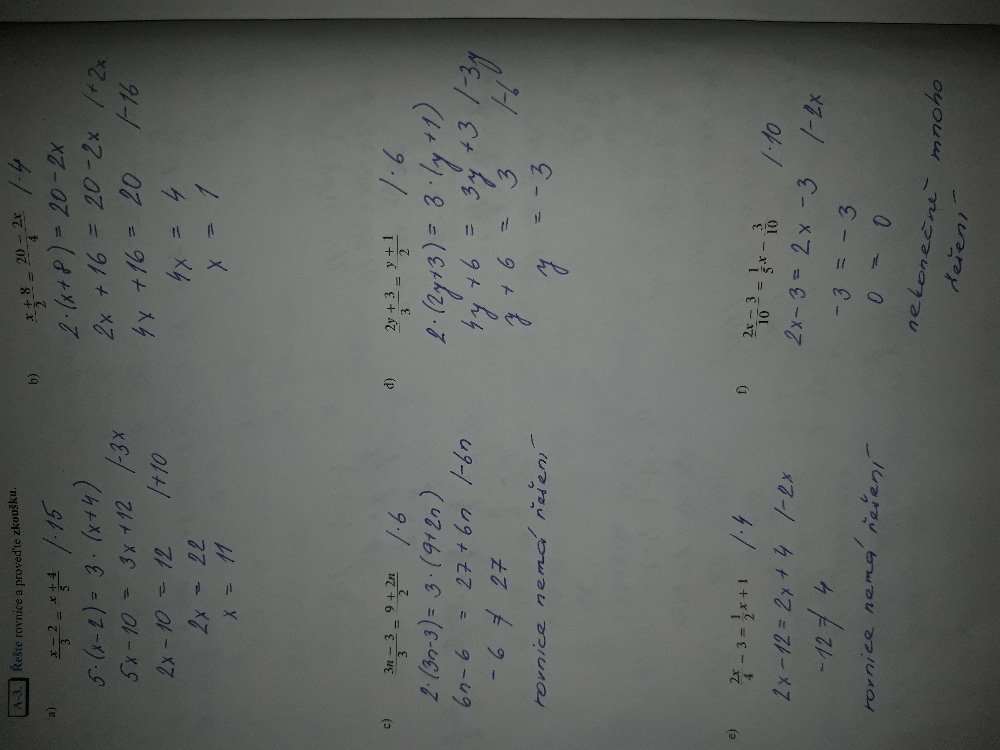 A-3. Řešte rovnice a proveďte zkoušku.
a) (x − 2)/3 = (x + 4)/5 /·15
5·(x−2) = 3·(x+4)
5x−10 = 3x+12 /-3x
2x−10 = 12 /+10
2x = 22
x = 11
b) (x + 8)/2 = (20 − 2x)/4 /·4
2·(x+8) = 20−2x
2x+16 = 20−2x /+2x
4x+16 = 20 /-16
4x = 4
x = 1
c) (3n − 3)/3 = (9 + 2n)/2 /·6
2·(3n-3) = 3·(9+2n)
6n−6 = 27+6n /-6n
-6 ≠ 27
rovnice nemá řešení
d) (2y + 3)/3 = (y + 1)/2 /·6
2·(2y+3) = 3·(y+1)
4y+6 = 3y+3 /-3y
y+6 = 3 /-6
y = -3
e) 2x/4 − 3 = 1/2 x + 1 /·4
2x−12 = 2x+4 /-2x
-12 ≠ 4
rovnice nemá řešení
f) (2x − 3)/10 = 1/5 x − 3/10 /·10
2x−3 = 2x−3 /-2x
-3 = -3
0 = 0
nekonečně mnoho
řešení